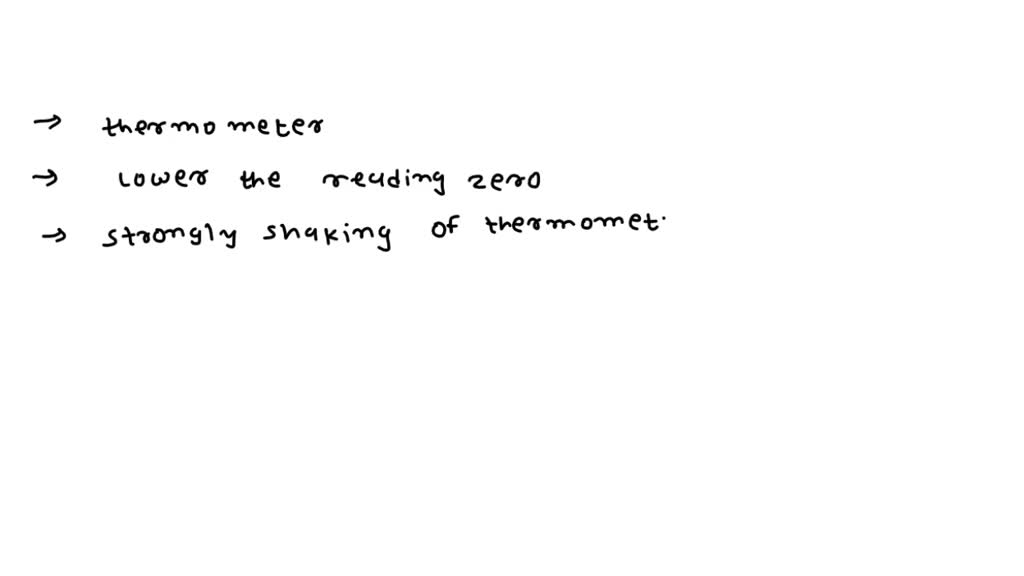 → thermometer
→ Lower the reading zero
→ strongly shaking of thermomet.